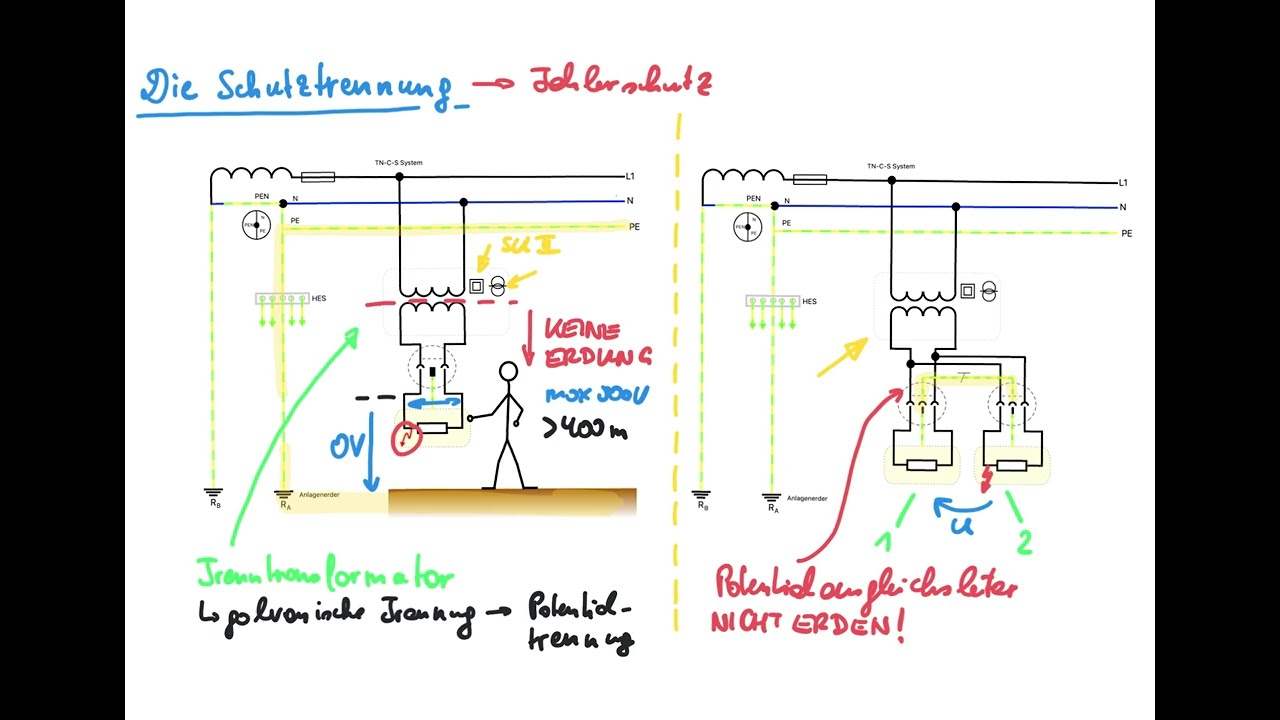 Die Schutztrennung → Fehlerschutz
TN-C-S System
L1
PEN
N
N
PEN
N
PE
PE
PE
SK II
HES
KEINE
ERDUNG
max 500V
>400m
0V
RB
RA
Anlagenerder
Trenntransformator
↳ galvanische Trennung → Potential-
trennung
TN-C-S System
L1
PEN
N
N
PEN
N
PE
PE
PE
HES
RB
RA
Anlagenerder
U
1
2
Potentialausgleichsleiter
NICHT ERDEN!